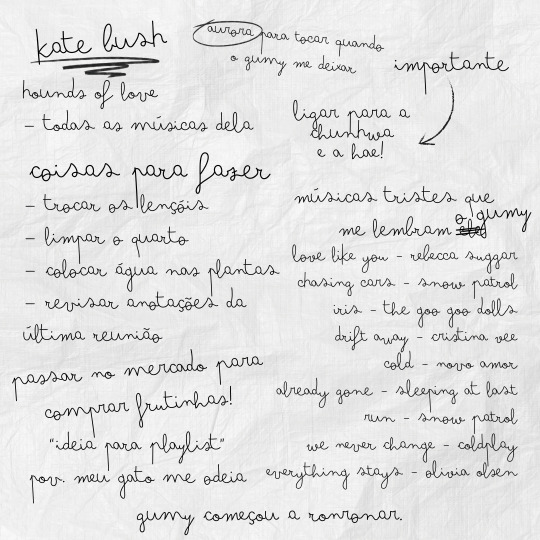 kate bush
hounds of love
- todas as músicas dela
coisas para fazer
- trocar os lençóis
- limpar o quarto
- colocar água nas plantas
- revisar anotações da
última reunião
passar no mercado para
comprar frutinhas!
"ideia para playlist"
pov. meu gato me odeia
aurora para tocar quando
o gumy me deixar
importante
ligar para a
chunhwa
e a hae!
músicas tristes que
me lembram o gumy
love like you - rebecca suggar
chasing cars - snow patrol
iris - the goo goo dolls
drift away - cristina vee
cold - novo amor
already gone - sleeping at last
run - snow patrol
we never change - coldplay
everything stays - olivia olsen
gumy começou a ronronar.